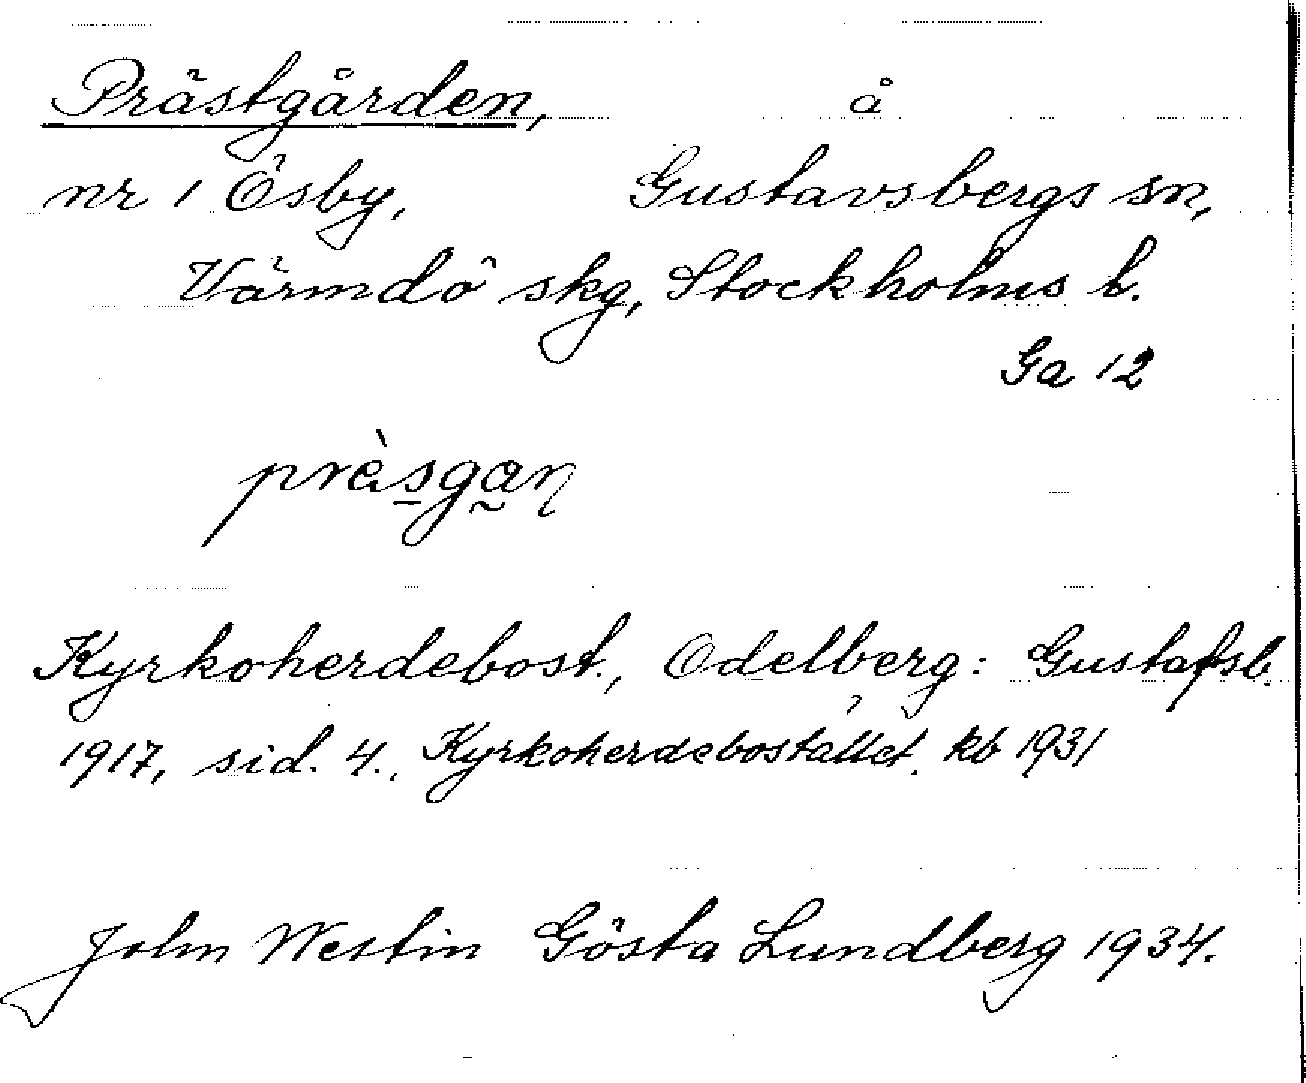 Prästgården, å
nr 1 Ösby, Gustavsbergs sn,
Värmdö skg, Stockholms l.
Ga 12
prà̱sga̰n
Kyrkoherdebost., Odelberg: Gustafsb.
1917, sid. 4., Kyrkoherdebostället. kb 1931
John Westin Gösta Lundberg 1934.